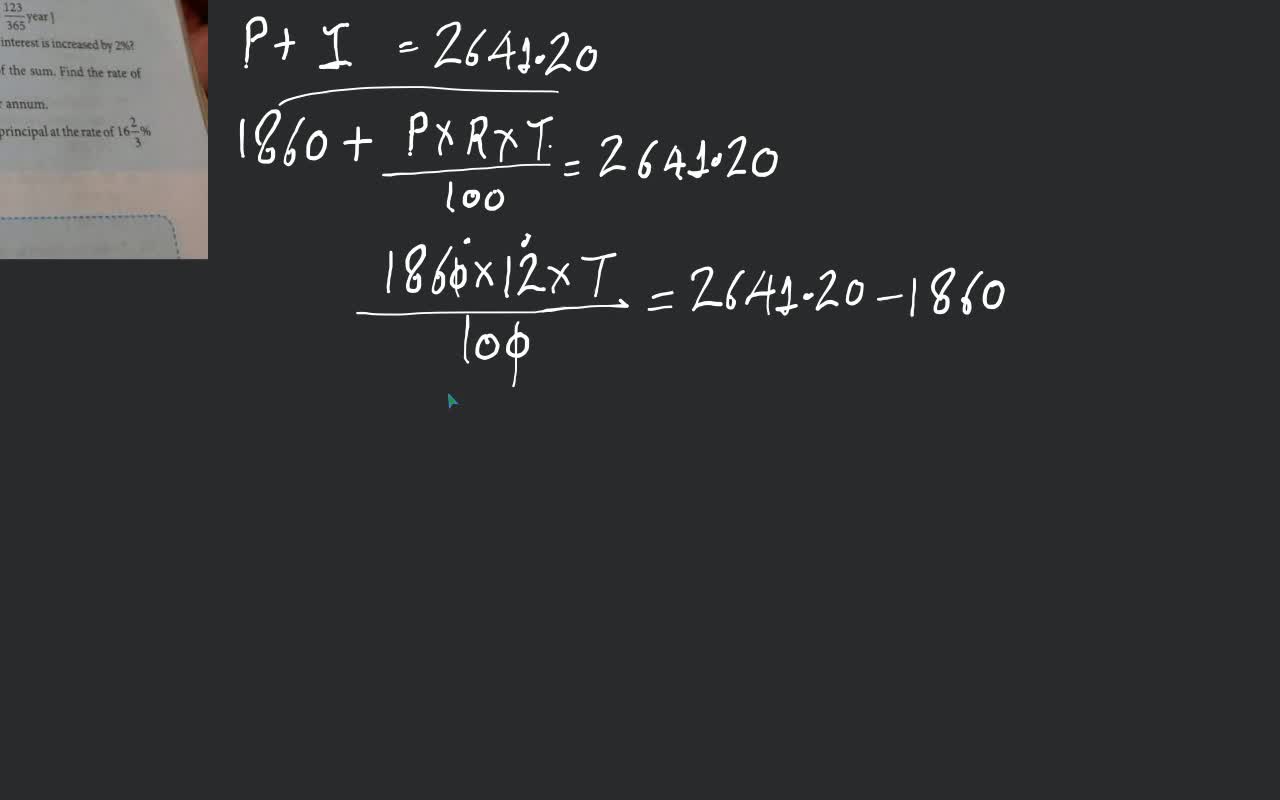 123/365 year]
interest is increased by 2%?
f the sum. Find the rate of
r annum.
principal at the rate of 16 2/3 %
P + I = 2641.20
1860 + P×R×T/100 = 2641.20
1860×12×T/100 = 2641.20 - 1860